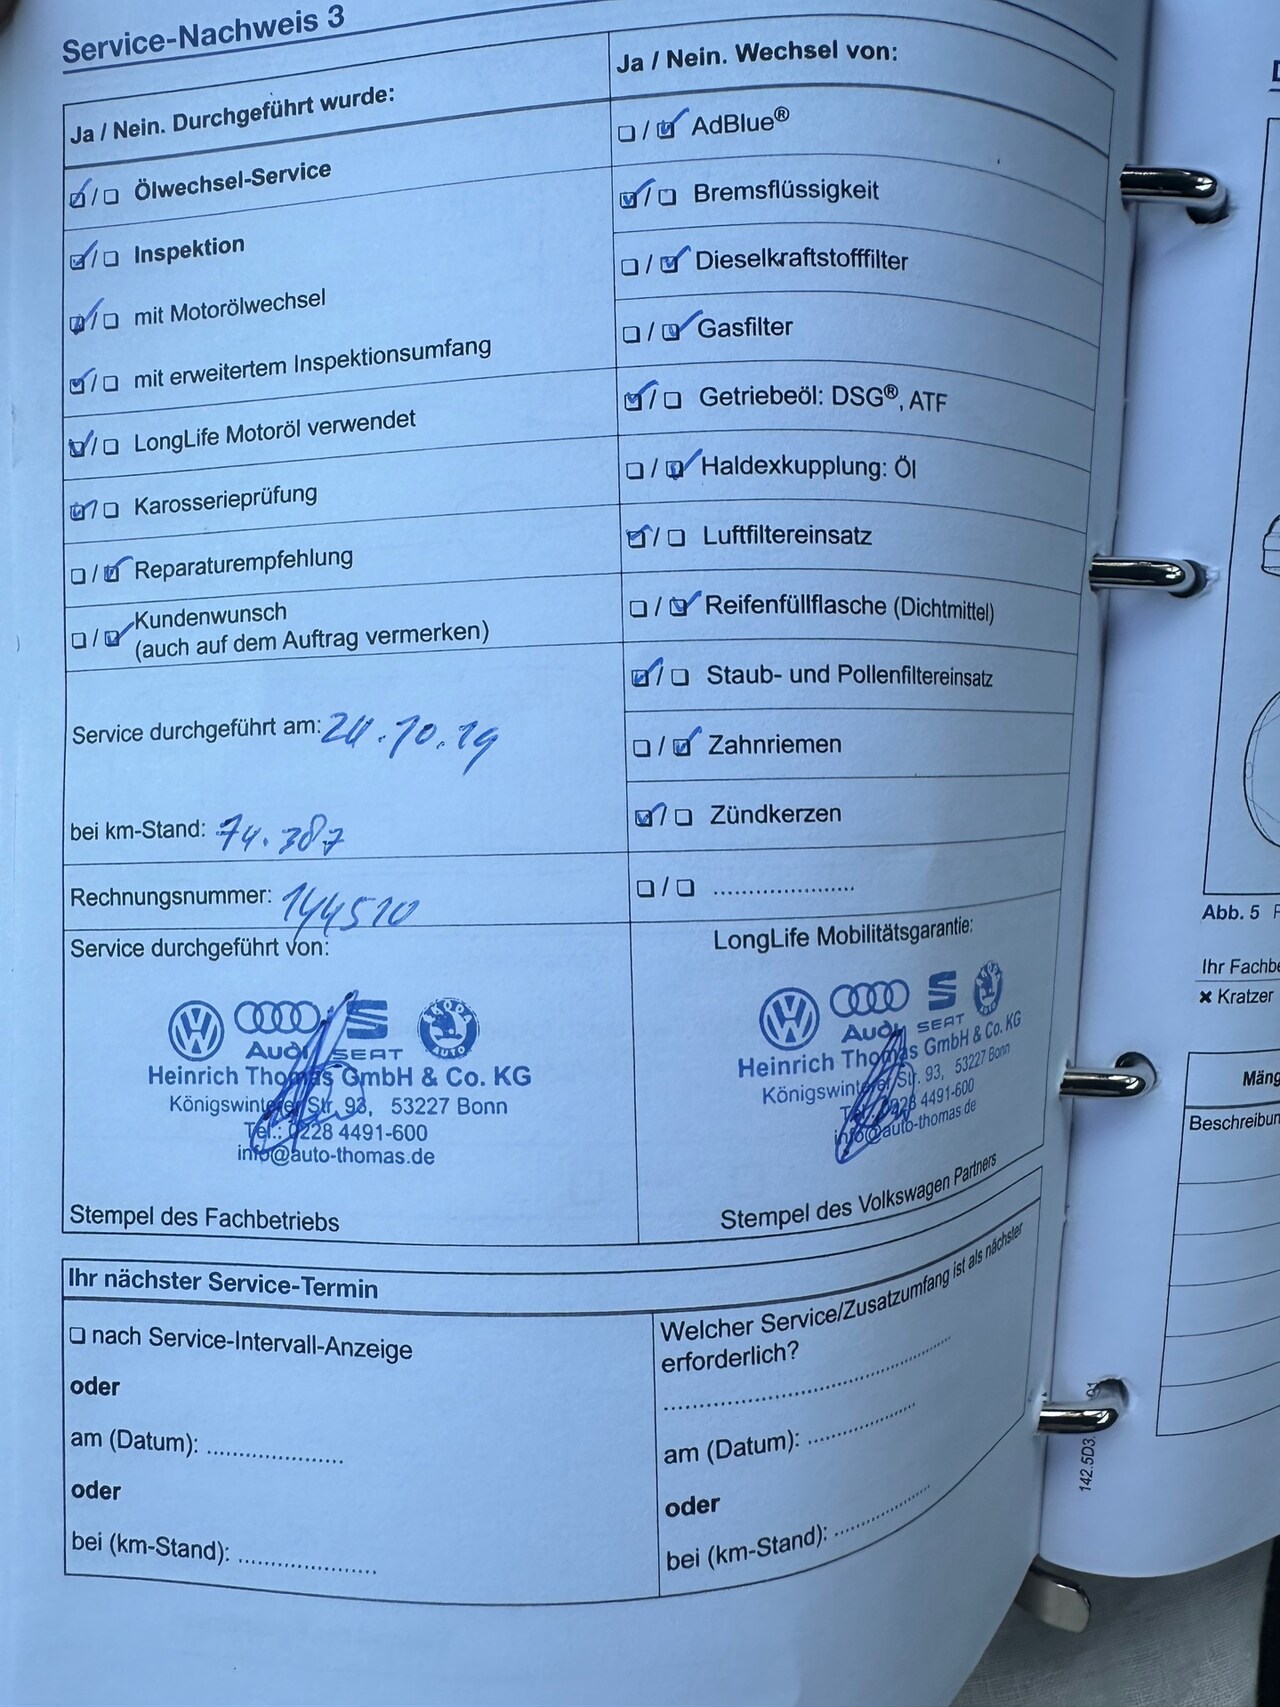 Service-Nachweis 3
Ja / Nein. Durchgeführt wurde:
☑/☐ Ölwechsel-Service
☑/☐ Inspektion
☑/☐ mit Motorölwechsel
☑/☐ mit erweitertem Inspektionsumfang
☑/☐ LongLife Motoröl verwendet
☑/☐ Karosserieprüfung
☐/☑ Reparaturempfehlung
☐/☑ Kundenwunsch
(auch auf dem Auftrag vermerken)
Service durchgeführt am: 24.10.19
bei km-Stand: 74.387
Rechnungsnummer: 144510
Service durchgeführt von:
Audi SEAT ŠKODA AUTO
Heinrich Thomas GmbH & Co. KG
Königswinterer Str. 93, 53227 Bonn
Tel.: 0228 4491-600
info@auto-thomas.de
Stempel des Fachbetriebs
Ja / Nein. Wechsel von:
☐/☑ AdBlue®
☑/☐ Bremsflüssigkeit
☐/☑ Dieselkraftstofffilter
☐/☑ Gasfilter
☑/☐ Getriebeöl: DSG®, ATF
☐/☑ Haldexkupplung: Öl
☑/☐ Luftfiltereinsatz
☐/☑ Reifenfüllflasche (Dichtmittel)
☑/☐ Staub- und Pollenfiltereinsatz
☐/☑ Zahnriemen
☑/☐ Zündkerzen
☐/☐ .....................
LongLife Mobilitätsgarantie:
Audi SEAT
Heinrich Thomas GmbH & Co. KG
Königswinterer Str. 93, 53227 Bonn
Tel.: 0228 4491-600
info@auto-thomas.de
Stempel des Volkswagen Partners
Ihr nächster Service-Termin
☐ nach Service-Intervall-Anzeige
oder
am (Datum): .....................
oder
bei (km-Stand): .....................
Welcher Service/Zusatzumfang ist als nächster
erforderlich?
am (Datum): .................
oder
bei (km-Stand): ...............
142.5D3.
Abb. 5
Ihr Fachbe
× Kratzer
Mäng
Beschreibun